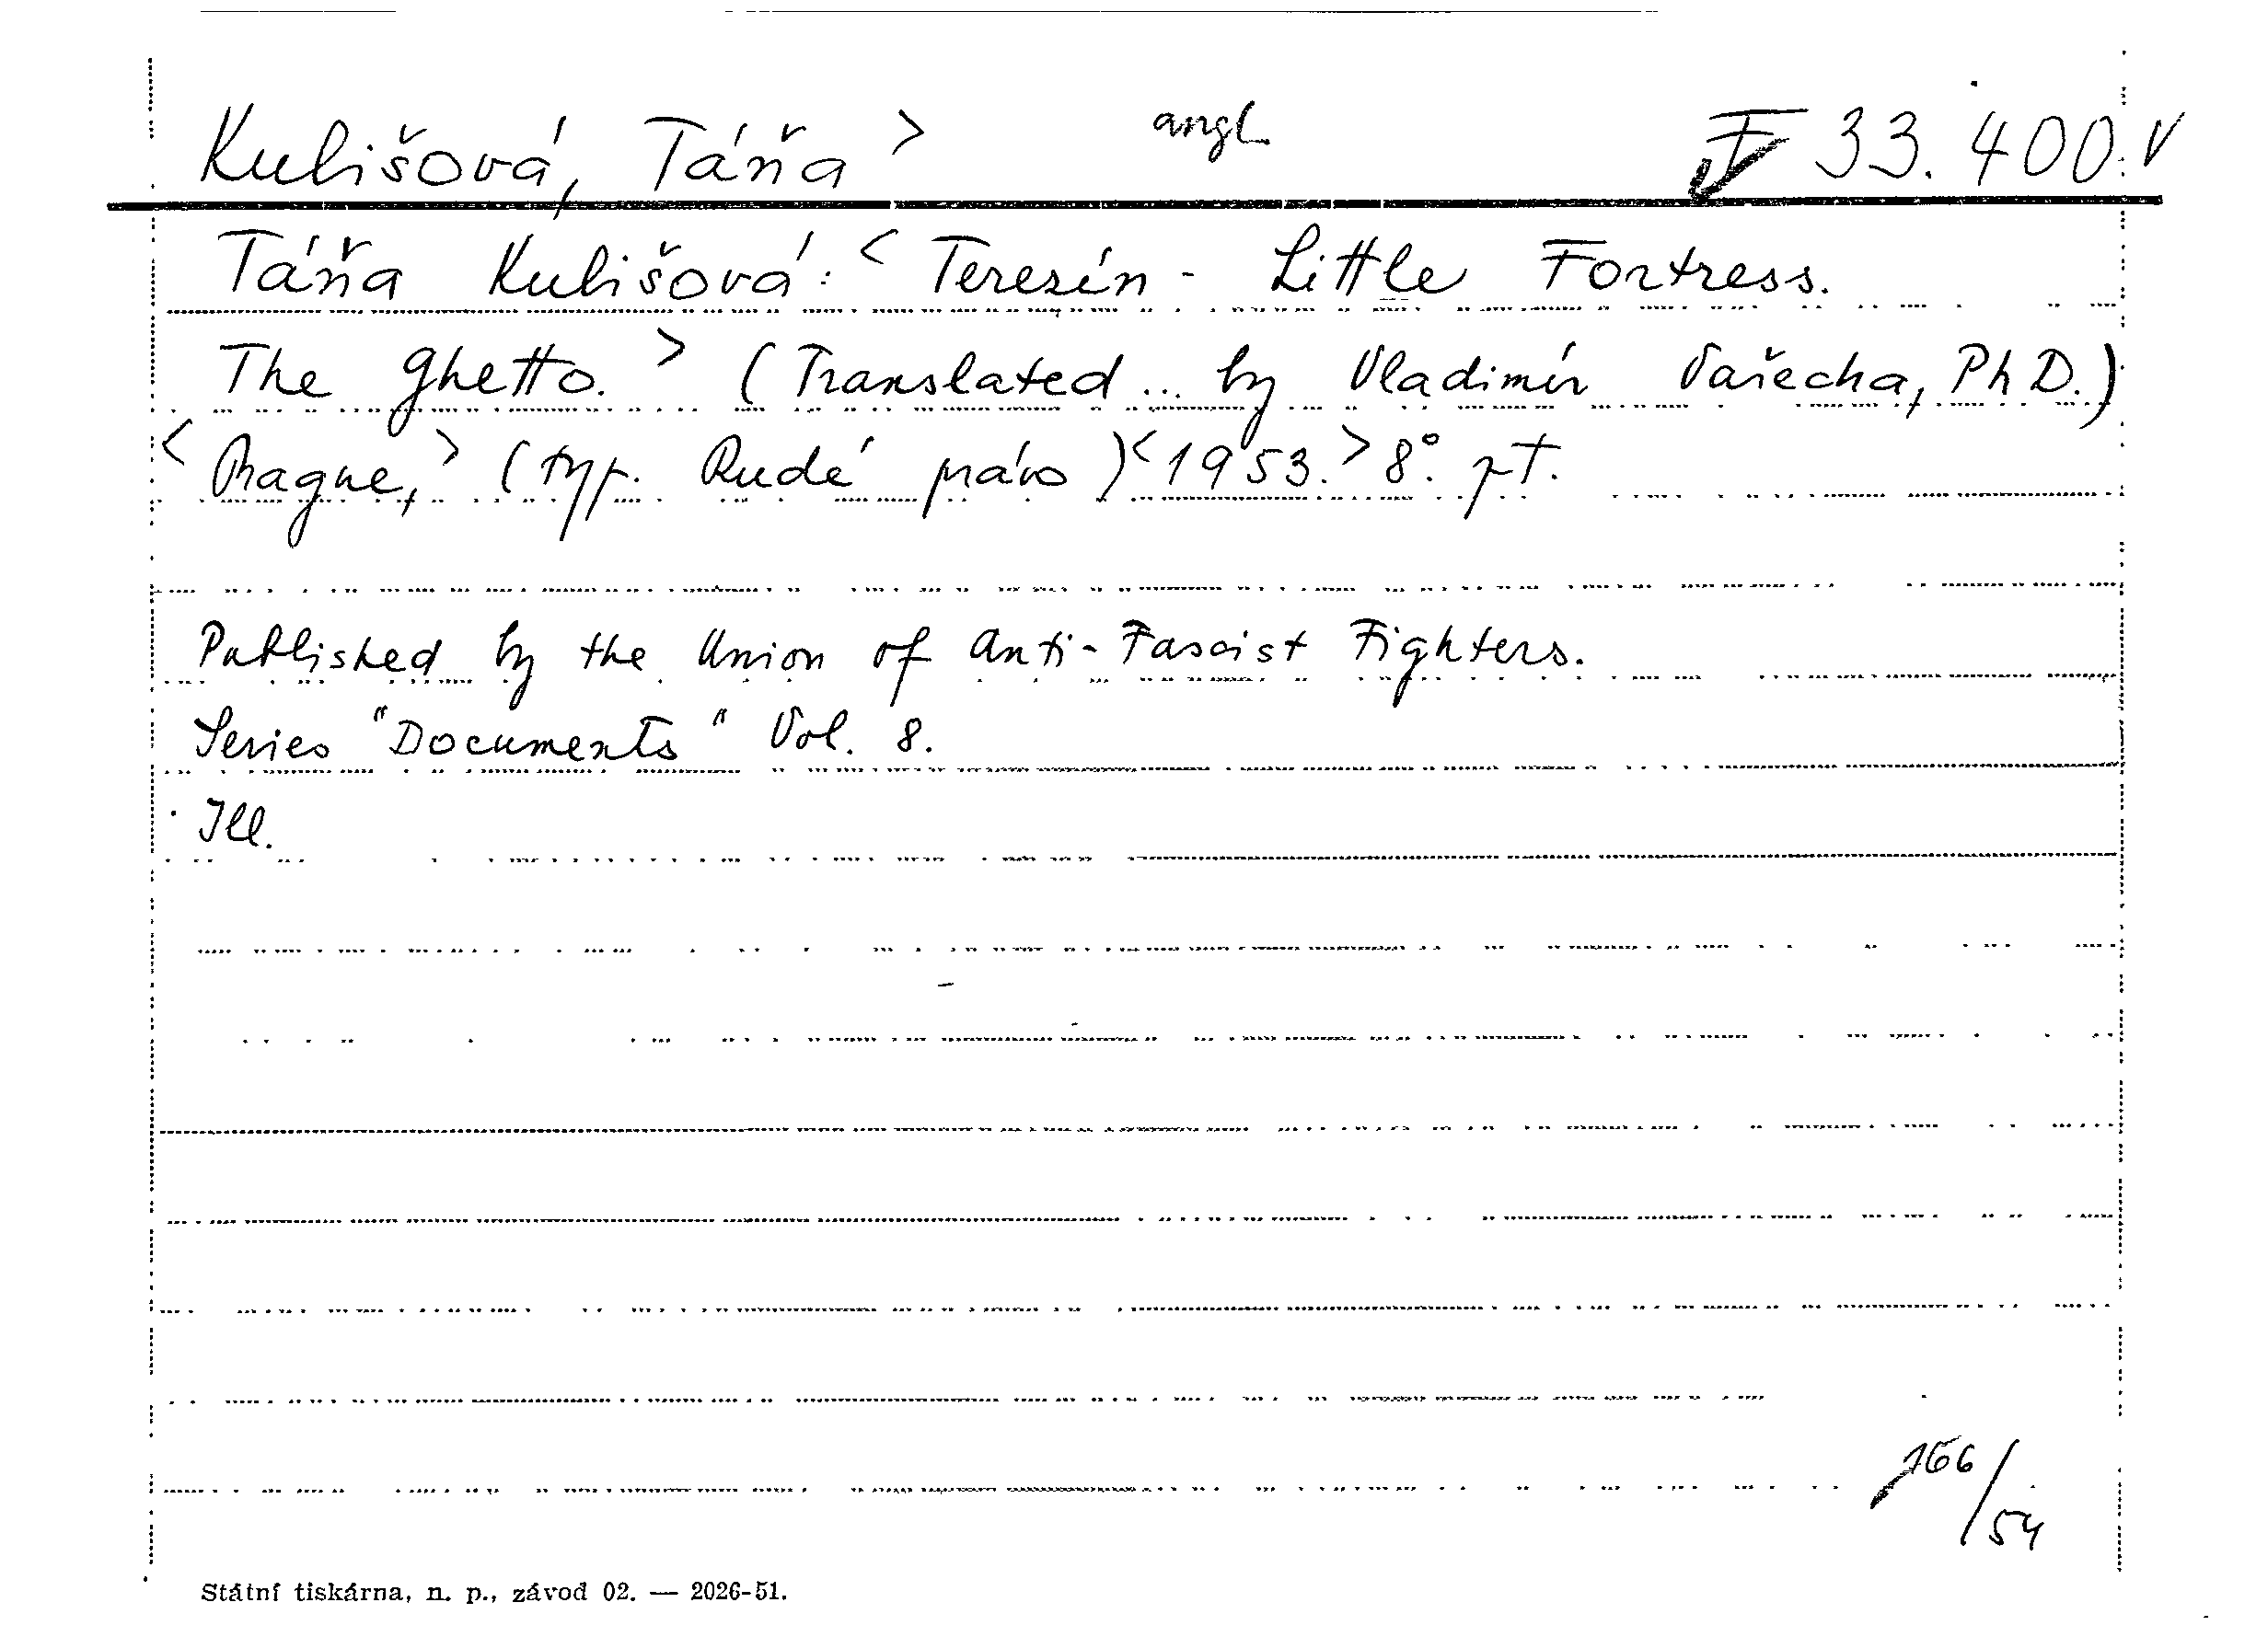 Kulišová, Táňa > angl. F 33.400. V
Táňa Kulišová: < Terezín - Little Fortress.
The Ghetto. > (Translated ... by Vladimír Vařecha, PhD.)
< Prague, > (typ. Rudé právo) < 1953. > 8°. pT.
Published by the Union of Anti-Fascist Fighters.
Series "Documents" Vol. 8.
Ill.
166/54
Státní tiskárna, n. p., závod 02. — 2026-51.